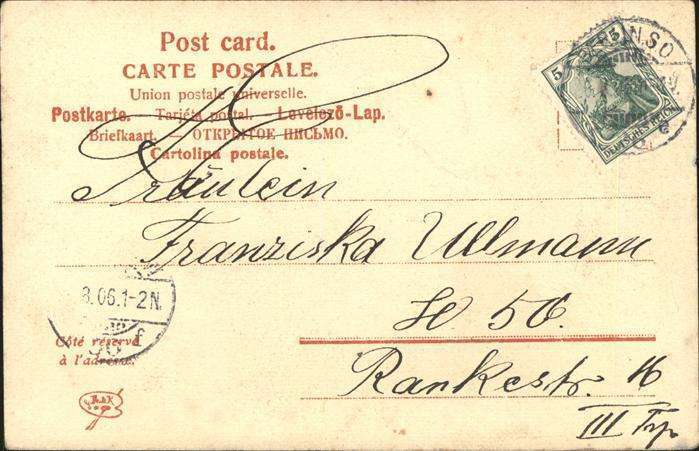 Post card.
CARTE POSTALE.
Union postale universelle.
Postkarte. — Tarjéta postal. — Levelező-Lap.
Briefkaart. — ОТКРЫТОЕ ПИСЬМО.
Cartolina postale.
5 5
DEUTSCHES REICH
Fräulein
Franziska Ullmann
W 50.
8.06.1-2N.
f
Côté réservé
à l'adresse.
Rankestr. 16
III